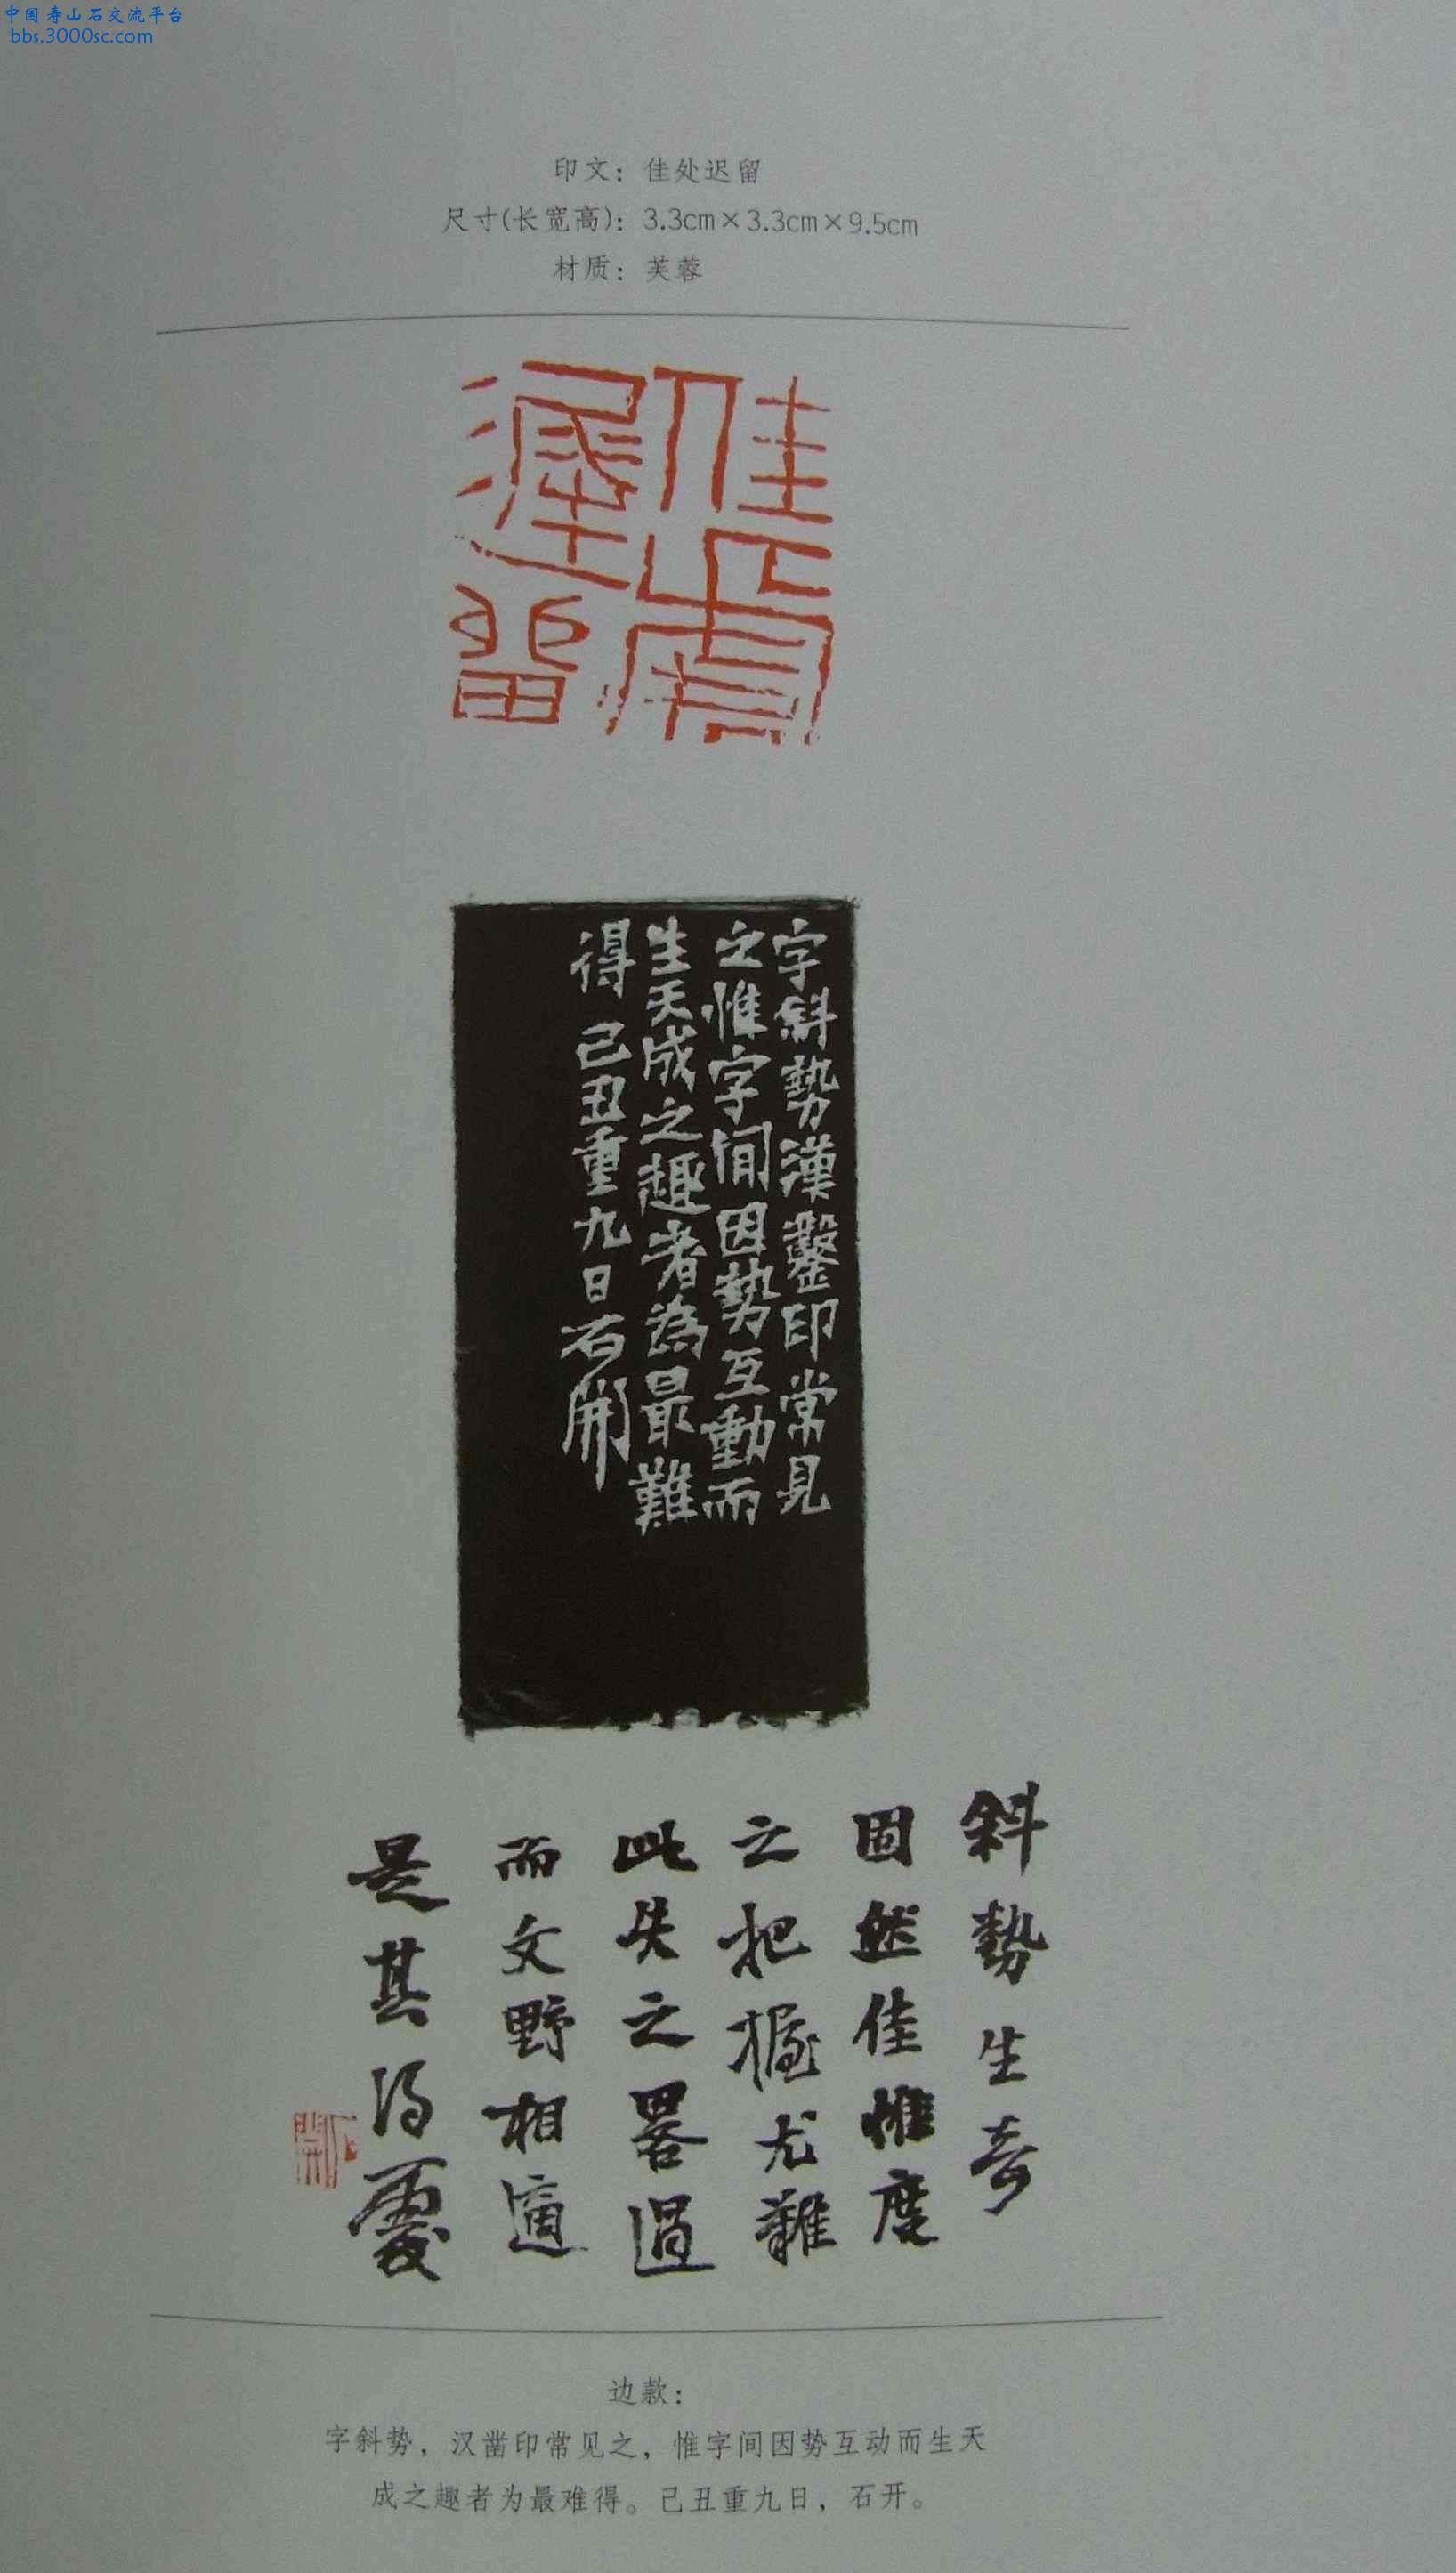 中国寿山石交流平台
bbs.3000sc.com
印文：佳处迟留
尺寸(长宽高)：3.3cm×3.3cm×9.5cm
材质：芙蓉
佳處
遲留
字斜勢漢鑿印常見
之惟字間因勢互動而
生天成之趣者為最難
得 己丑重九日石開
斜勢生奇
固然佳惟度
之把握尤難
此失之畧過
而文野相適
是其得處
石開
边款：
字斜势，汉凿印常见之，惟字间因势互动而生天
成之趣者为最难得。己丑重九日，石开。